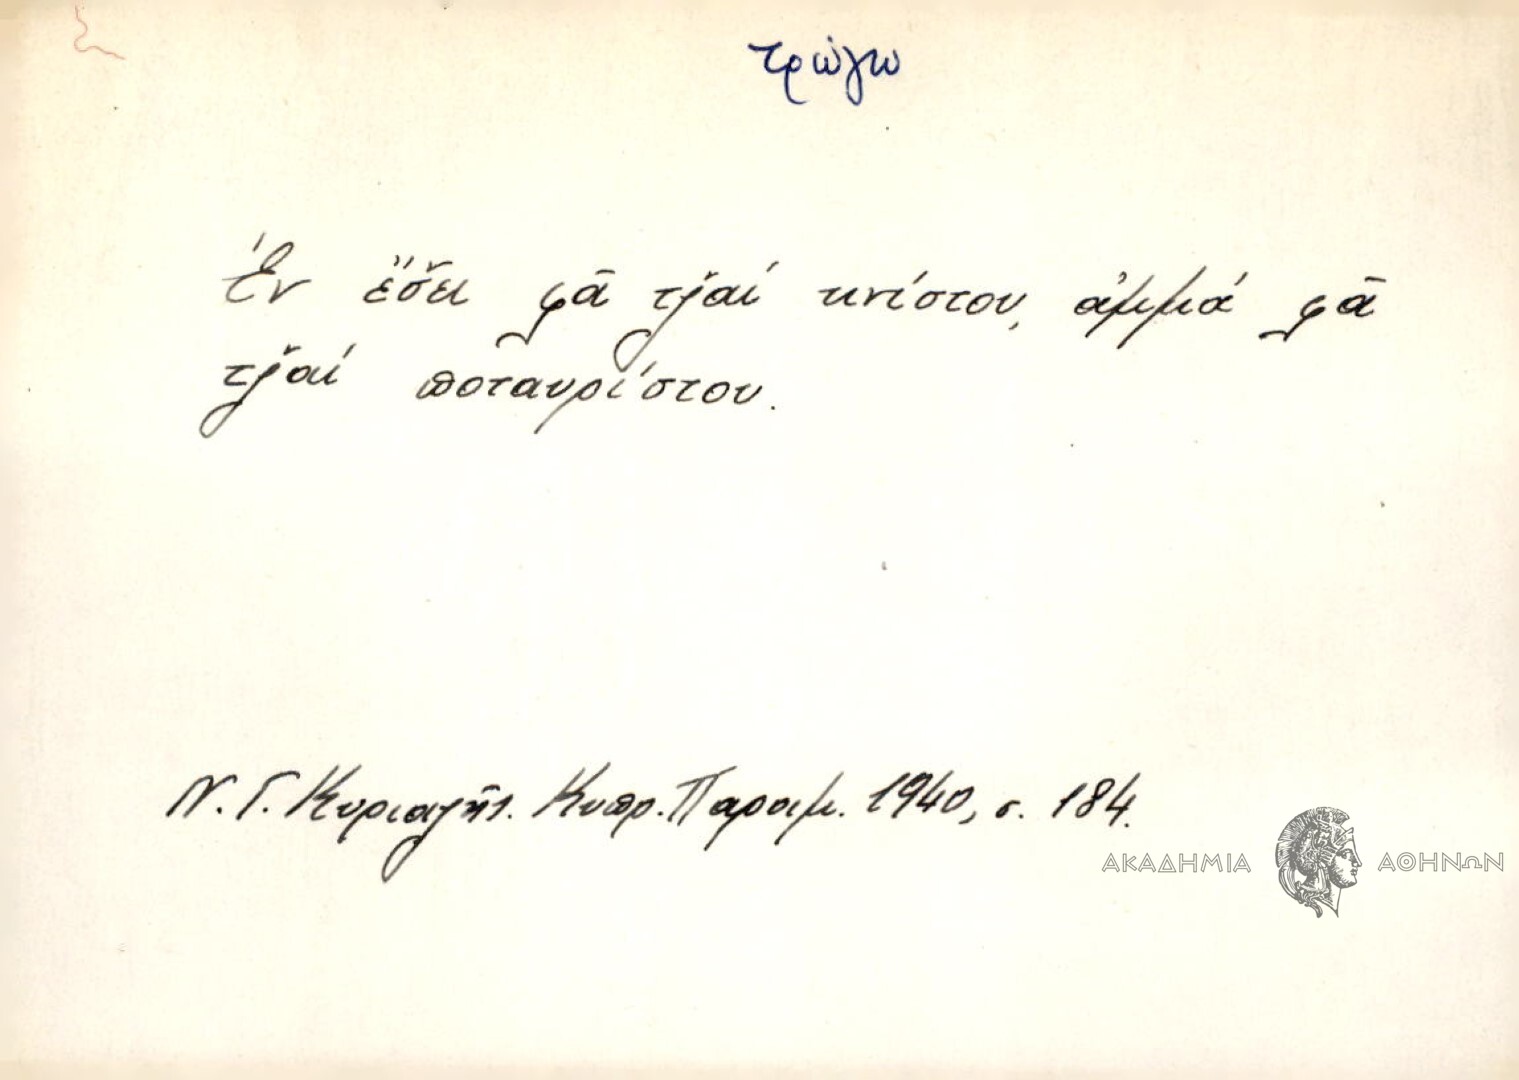 τρώγω
Ἐν ἔσ̌ει φᾶ τζ̌αί κνίστου, ἀμμά φᾶ
τζ̌αί ποταυρίστου.
Ν. Γ. Κυριαζῆς. Κυπρ. Παροιμ. 1940, σ. 184.
ΑΚΑΔΗΜΙΑ ΑΘΗΝΩΝ